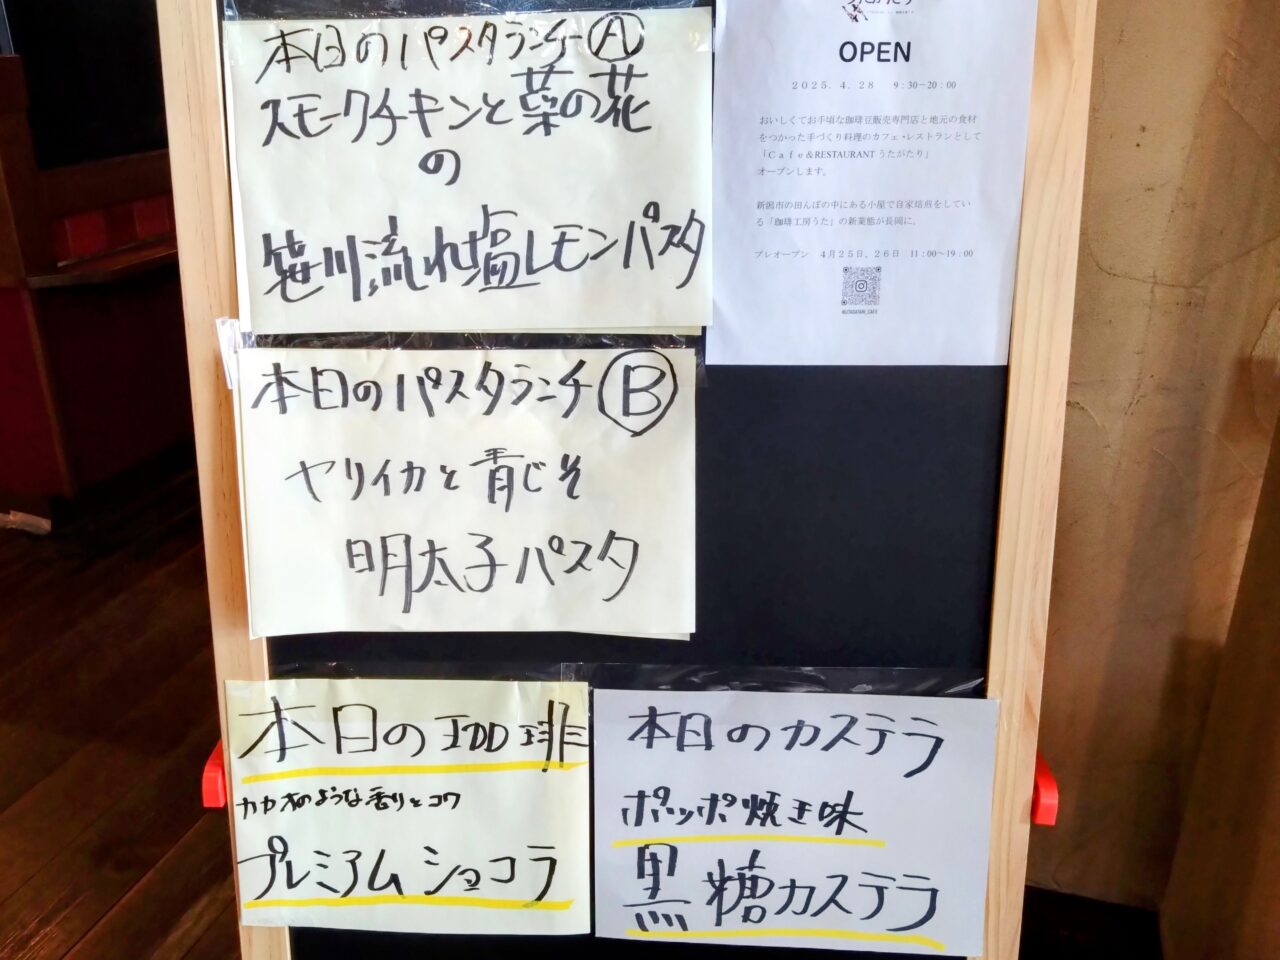 本日のパスタランチⒶ
スモークチキンと菜の花
の
笹川流れ塩レモンパスタ
うたがたり
OPEN
2025. 4. 28　9:30−20:00
おいしくてお手頃な珈琲豆販売専門店と地元の食材
をつかった手づくり料理のカフェ・レストランとして
「Cafe&RESTAURANT うたがたり」
オープンします。
新潟市の田んぼの中にある小屋で自家焙煎をしている
「珈琲工房うた」の新業態が長岡に。
プレオープン　4月25日、26日　11:00〜19:00
@UTAGATARI_CAFE
本日のパスタランチⒷ
ヤリイカと青じそ
明太子パスタ
本日の珈琲
カカオのような香りとコク
プレミアムショコラ
本日のカステラ
ポッポ焼き味
黒糖カステラ